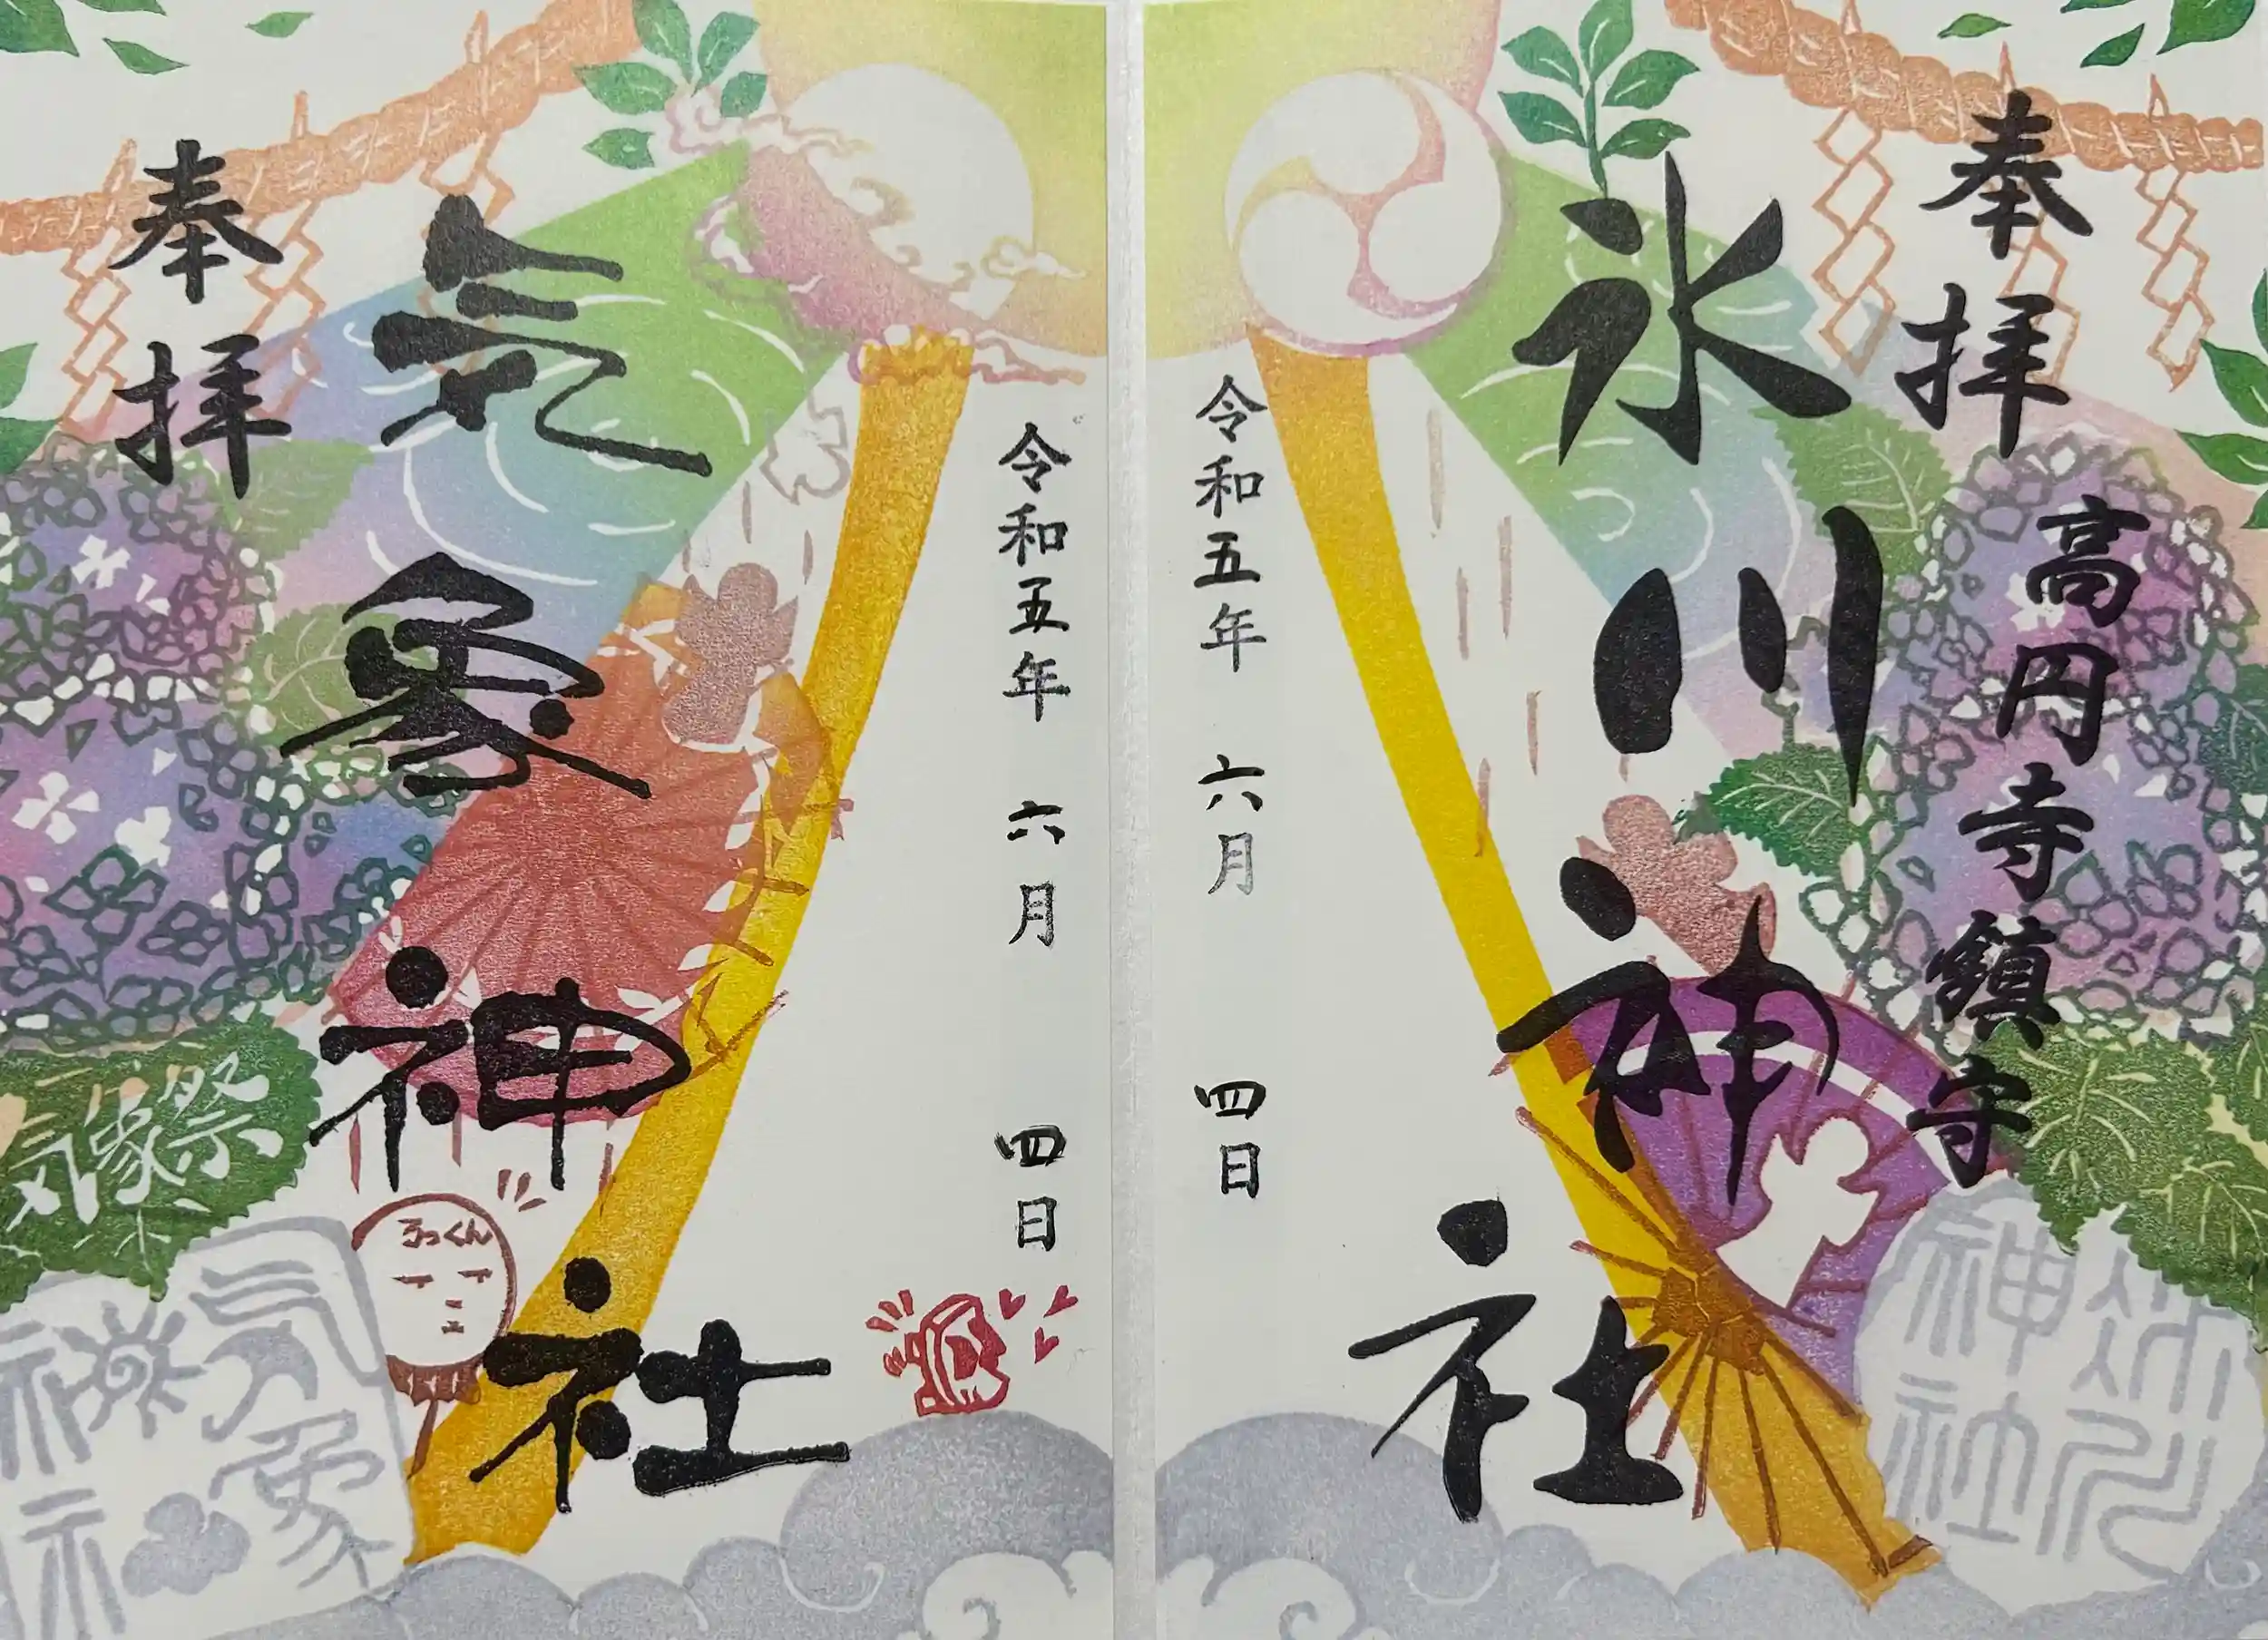 奉拝
高円寺鎮守
氷川神社
令和五年 六月 四日
氷川
神社
令和五年 六月 四日
気象神社
奉拝
気象祭
気象
神社